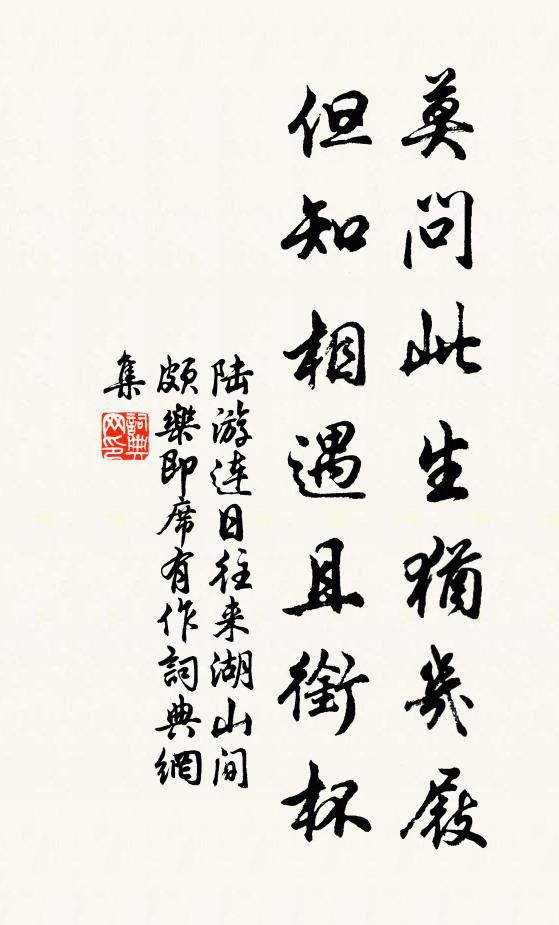 莫問此生猶幾屐
但知相遇且銜杯
陸游連日往来湖山间
頗樂即席有作詞典網
集
詞典网印